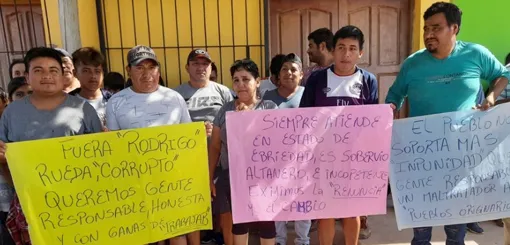 FUERA "RODRIGO"
RUEDA "CORRUPTO"
QUEREMOS GENTE
RESPONSABLE, HONESTA
Y CON GANAS DE TRABAJAR
SIEMPRE ATIENDE
EN ESTADO DE
EBRIEDAD, ES SOBERVIO
ALTANERO, E INCOPETENTE
EXIJIMOS LA "RENUNCIA"
Y EL CAMBIO
EL PUEBLO NO
SOPORTA MAS
IMPUNIDAD
GENTE
UN MALTRATADOR A
PUEBLOS ORIGINARIOS